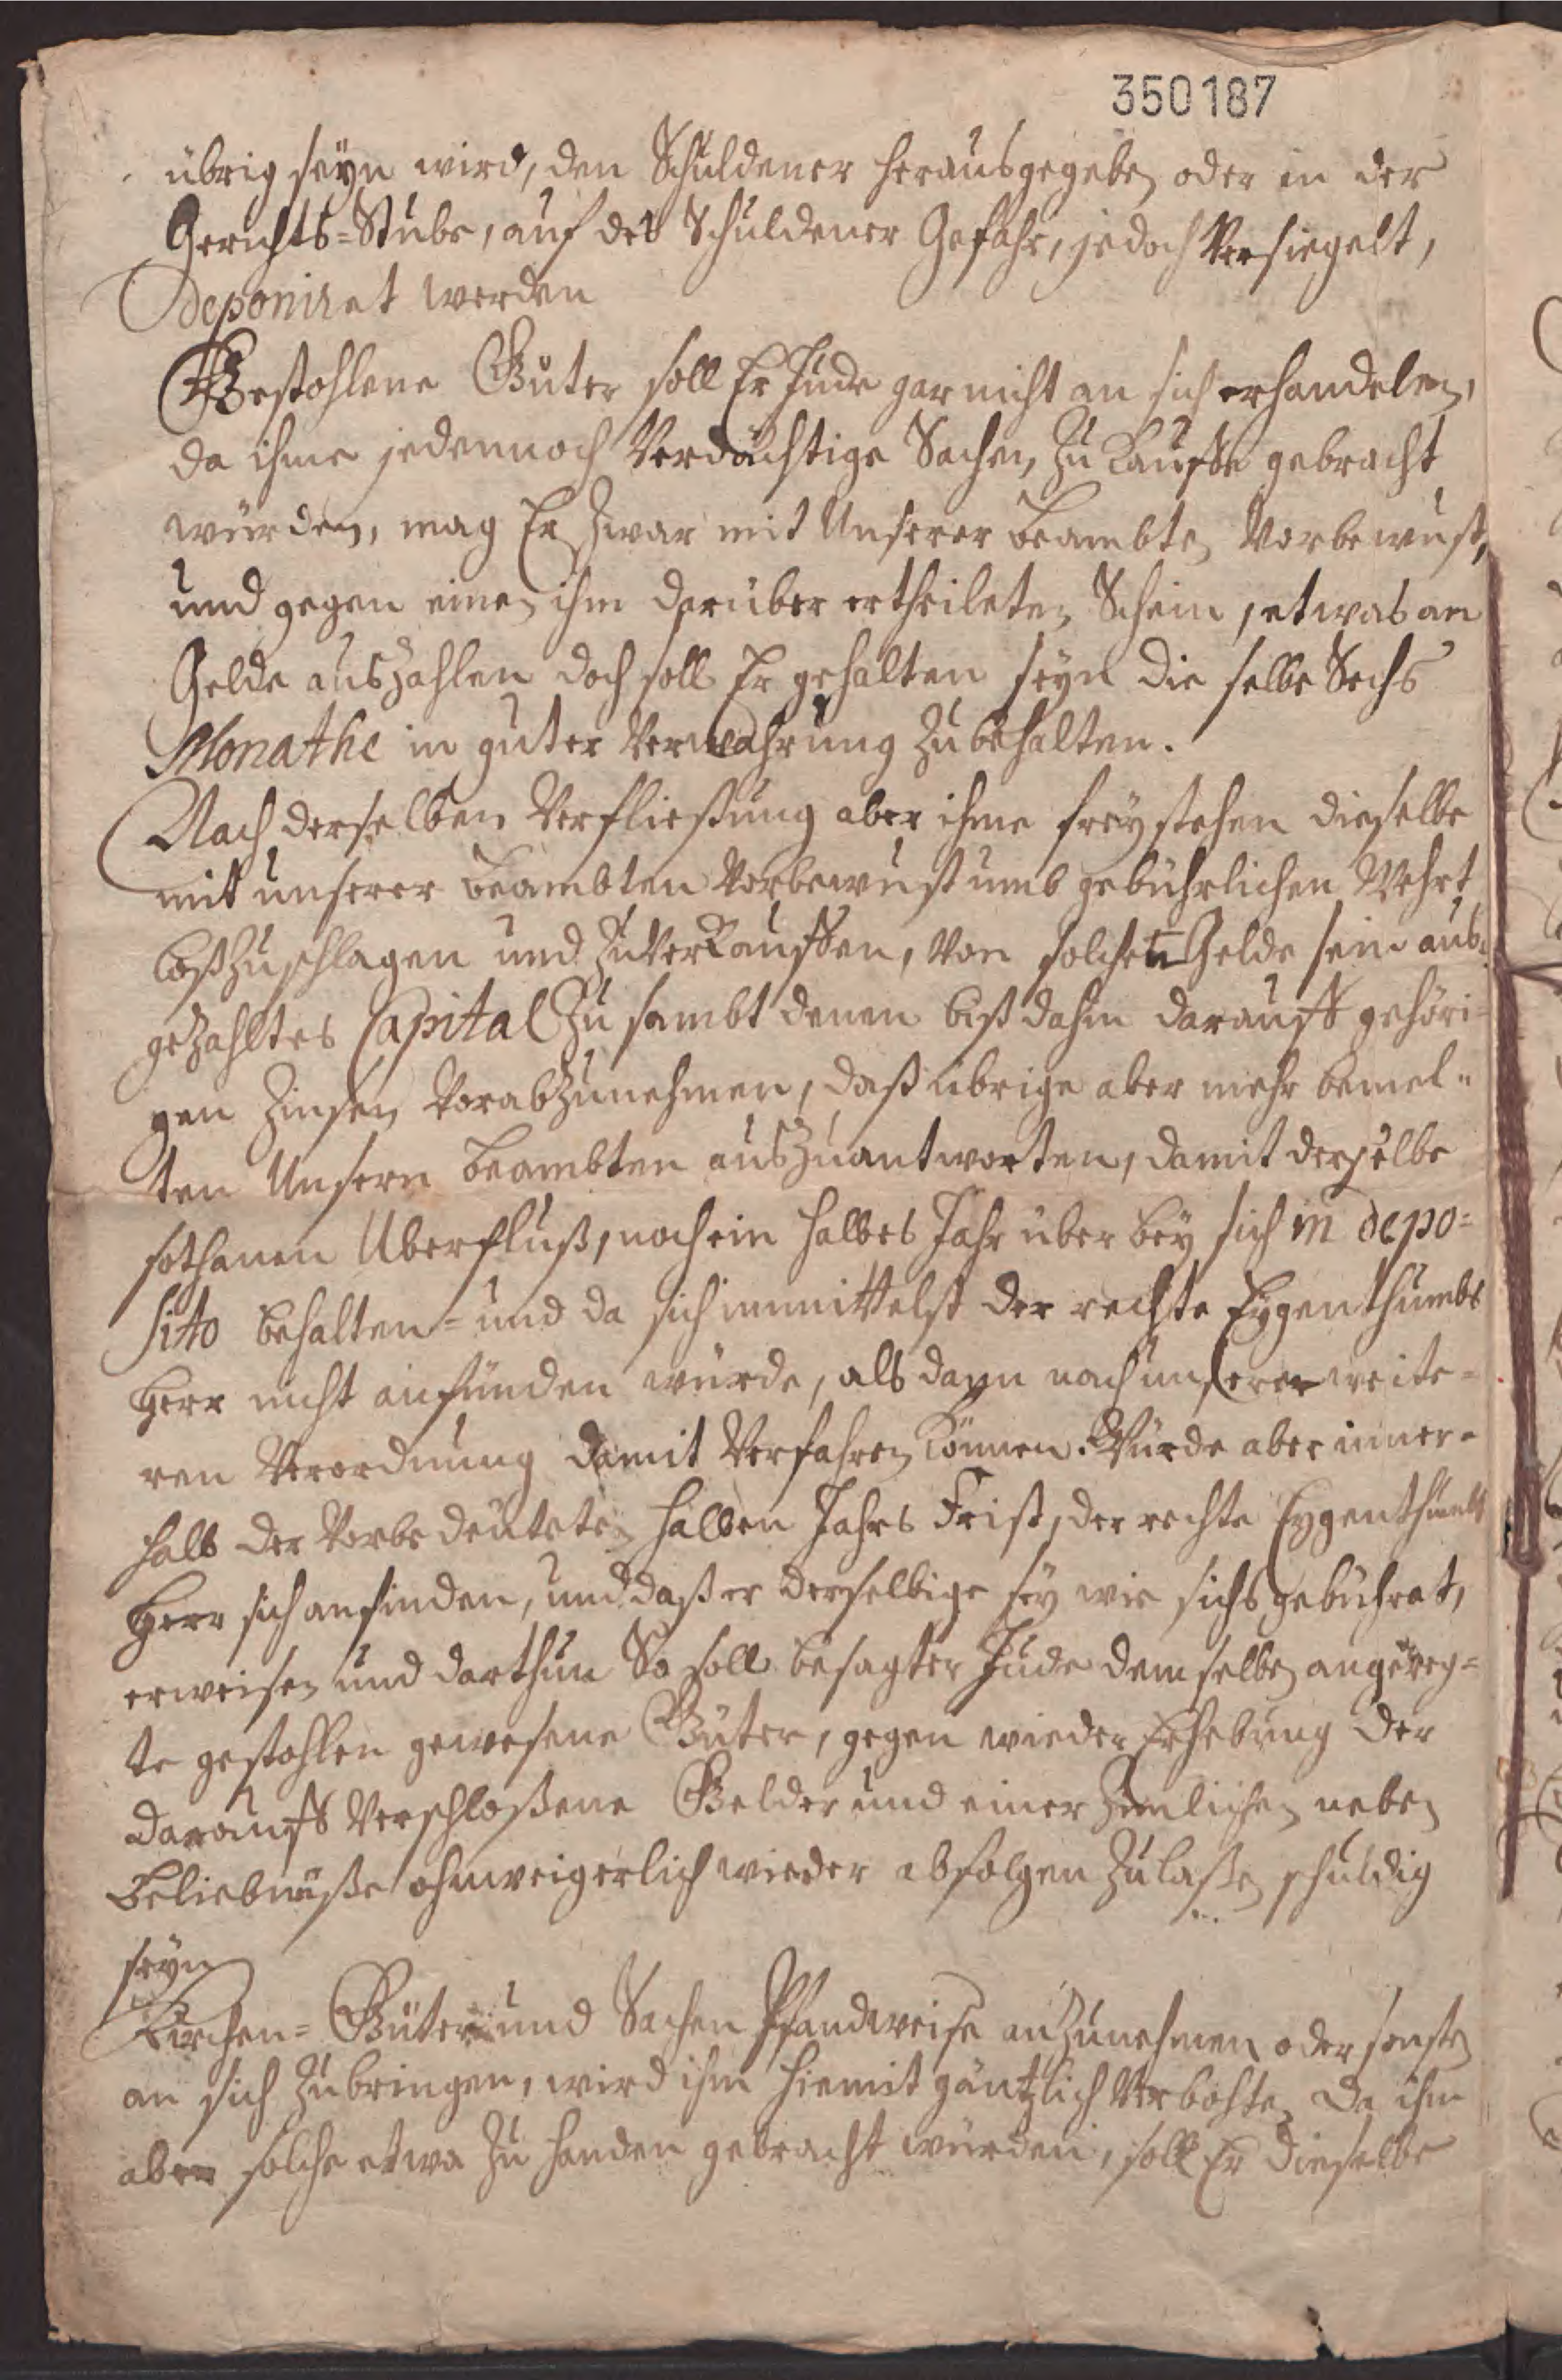 350187
übrig seyn wird, den Schuldener herausgegeben oder in der
Gerichts=Stube, auf des Schuldener Gefahr, jedoch Versiegelt,
deponiret werden
Gestohlene Güter soll Er Jude gar nicht an sich erhandelen,
da ihme jedennoch Verdächtige Sachen, zu Kauffe gebracht
würden, mag Er zwar mit Unserer Beambten Vorbewust,
und gegen einen ihm darüber ertheileten Schein, etwas an
Gelde auszahlen doch soll Er gehalten seyn die selbe Sechs
Monathe in guter Verwahrung zu behalten.
Nach derselben Verfließung aber ihme freystehen dieselbe
mit unserer Beambten Vorbewust umb gebührlichen Wehrt
loßzuschlagen und zu Verkauffen, Von solchen Gelde sein aus=
gezahltes Capital zu sambt denen biß dahin darauff gehöri=
gen Zinsen Vorabzunehmen, daß übrige aber mehr bemel=
ten Unsern Beambten auszuantworten, damit derselbe
sothanen Uberfluß, noch ein halbes Jahr über bey sich in depo=
sito behalten= und da sich immittelst der rechte Eygenthumbs
Herr nicht anfünden würde, als dann nach unserer weite=
ren Verordnung damit Verfahren können. Würde aber inner=
halb der Vorbedeuteten halben Jahrs Frist, der rechte Eygenthumbs
Herr sich anfinden, und daß er derselbige sey wie sichs gebühret,
erweisen und darthun So soll besagter Jude demselben angereg=
te gestohlen gewesene Güter, gegen wieder Erhebung der
darauff Verschloßene Gelder und einer zimlichen neben
Beliebnüße ohnweigerlich wieder abfolgen zulaßen schuldig
seyn
Kirchen= Güter und Sachen Pfandweise anzunehmen oder sonsten
an sich zubringen, wird ihm hiemit gäntzlich Verbohten Da ihm
aber solche etwa zu handen gebracht würden, soll Er dieselbe